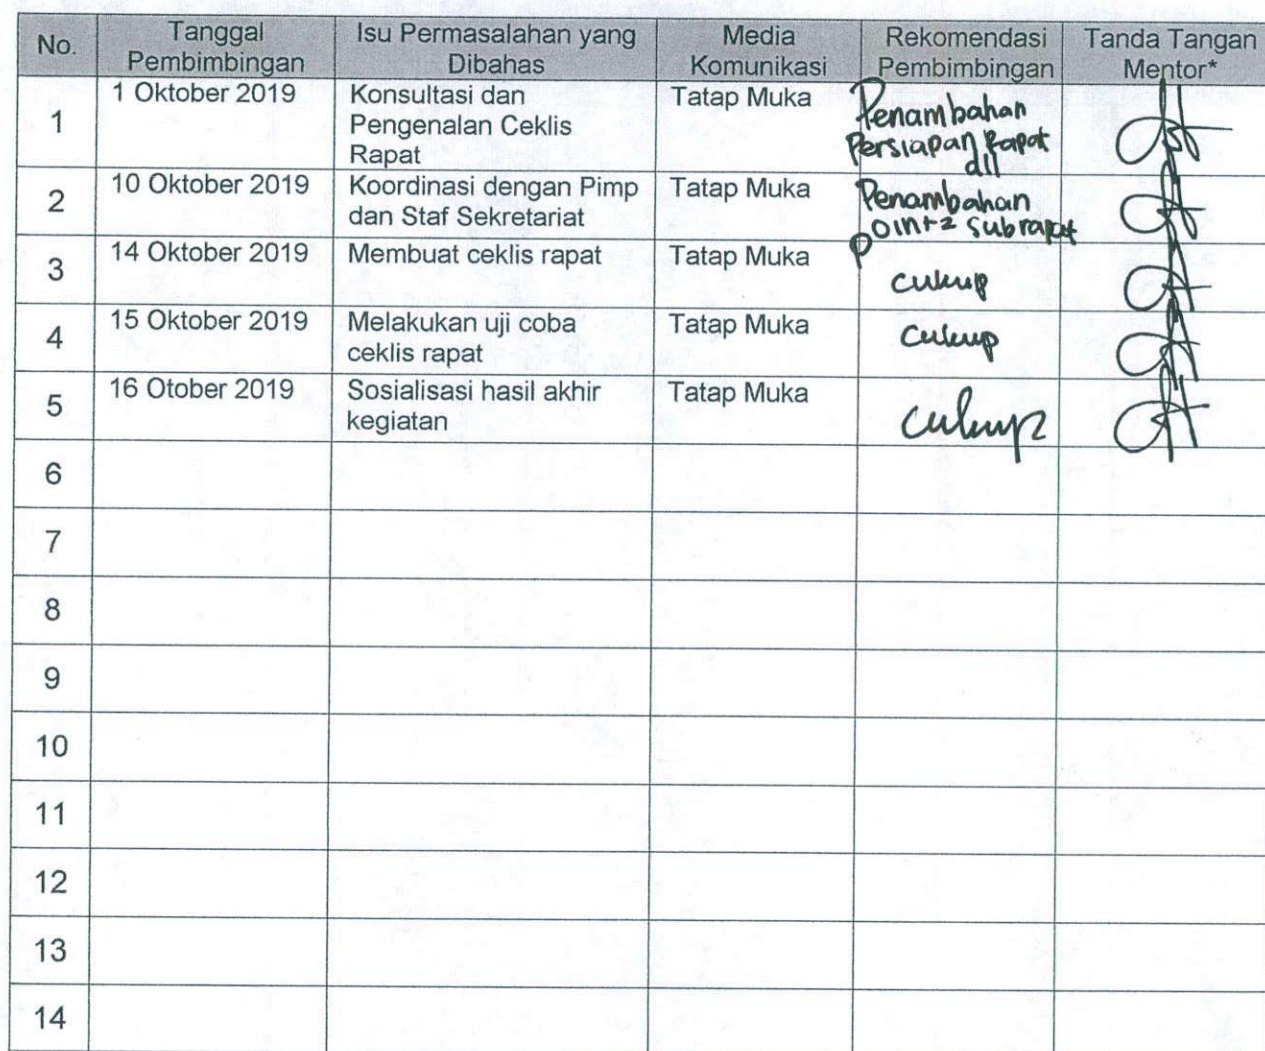 No. Tanggal Pembimbingan Isu Permasalahan yang Dibahas Media Komunikasi Rekomendasi Pembimbingan Tanda Tangan Mentor*
1 1 Oktober 2019 Konsultasi dan Pengenalan Ceklis Rapat Tatap Muka Penambahan Persiapan Rapat dll
2 10 Oktober 2019 Koordinasi dengan Pimp dan Staf Sekretariat Tatap Muka Penambahan Point2 Subrapat
3 14 Oktober 2019 Membuat ceklis rapat Tatap Muka cukup
4 15 Oktober 2019 Melakukan uji coba ceklis rapat Tatap Muka cukup
5 16 Otober 2019 Sosialisasi hasil akhir kegiatan Tatap Muka cukup
6
7
8
9
10
11
12
13
14